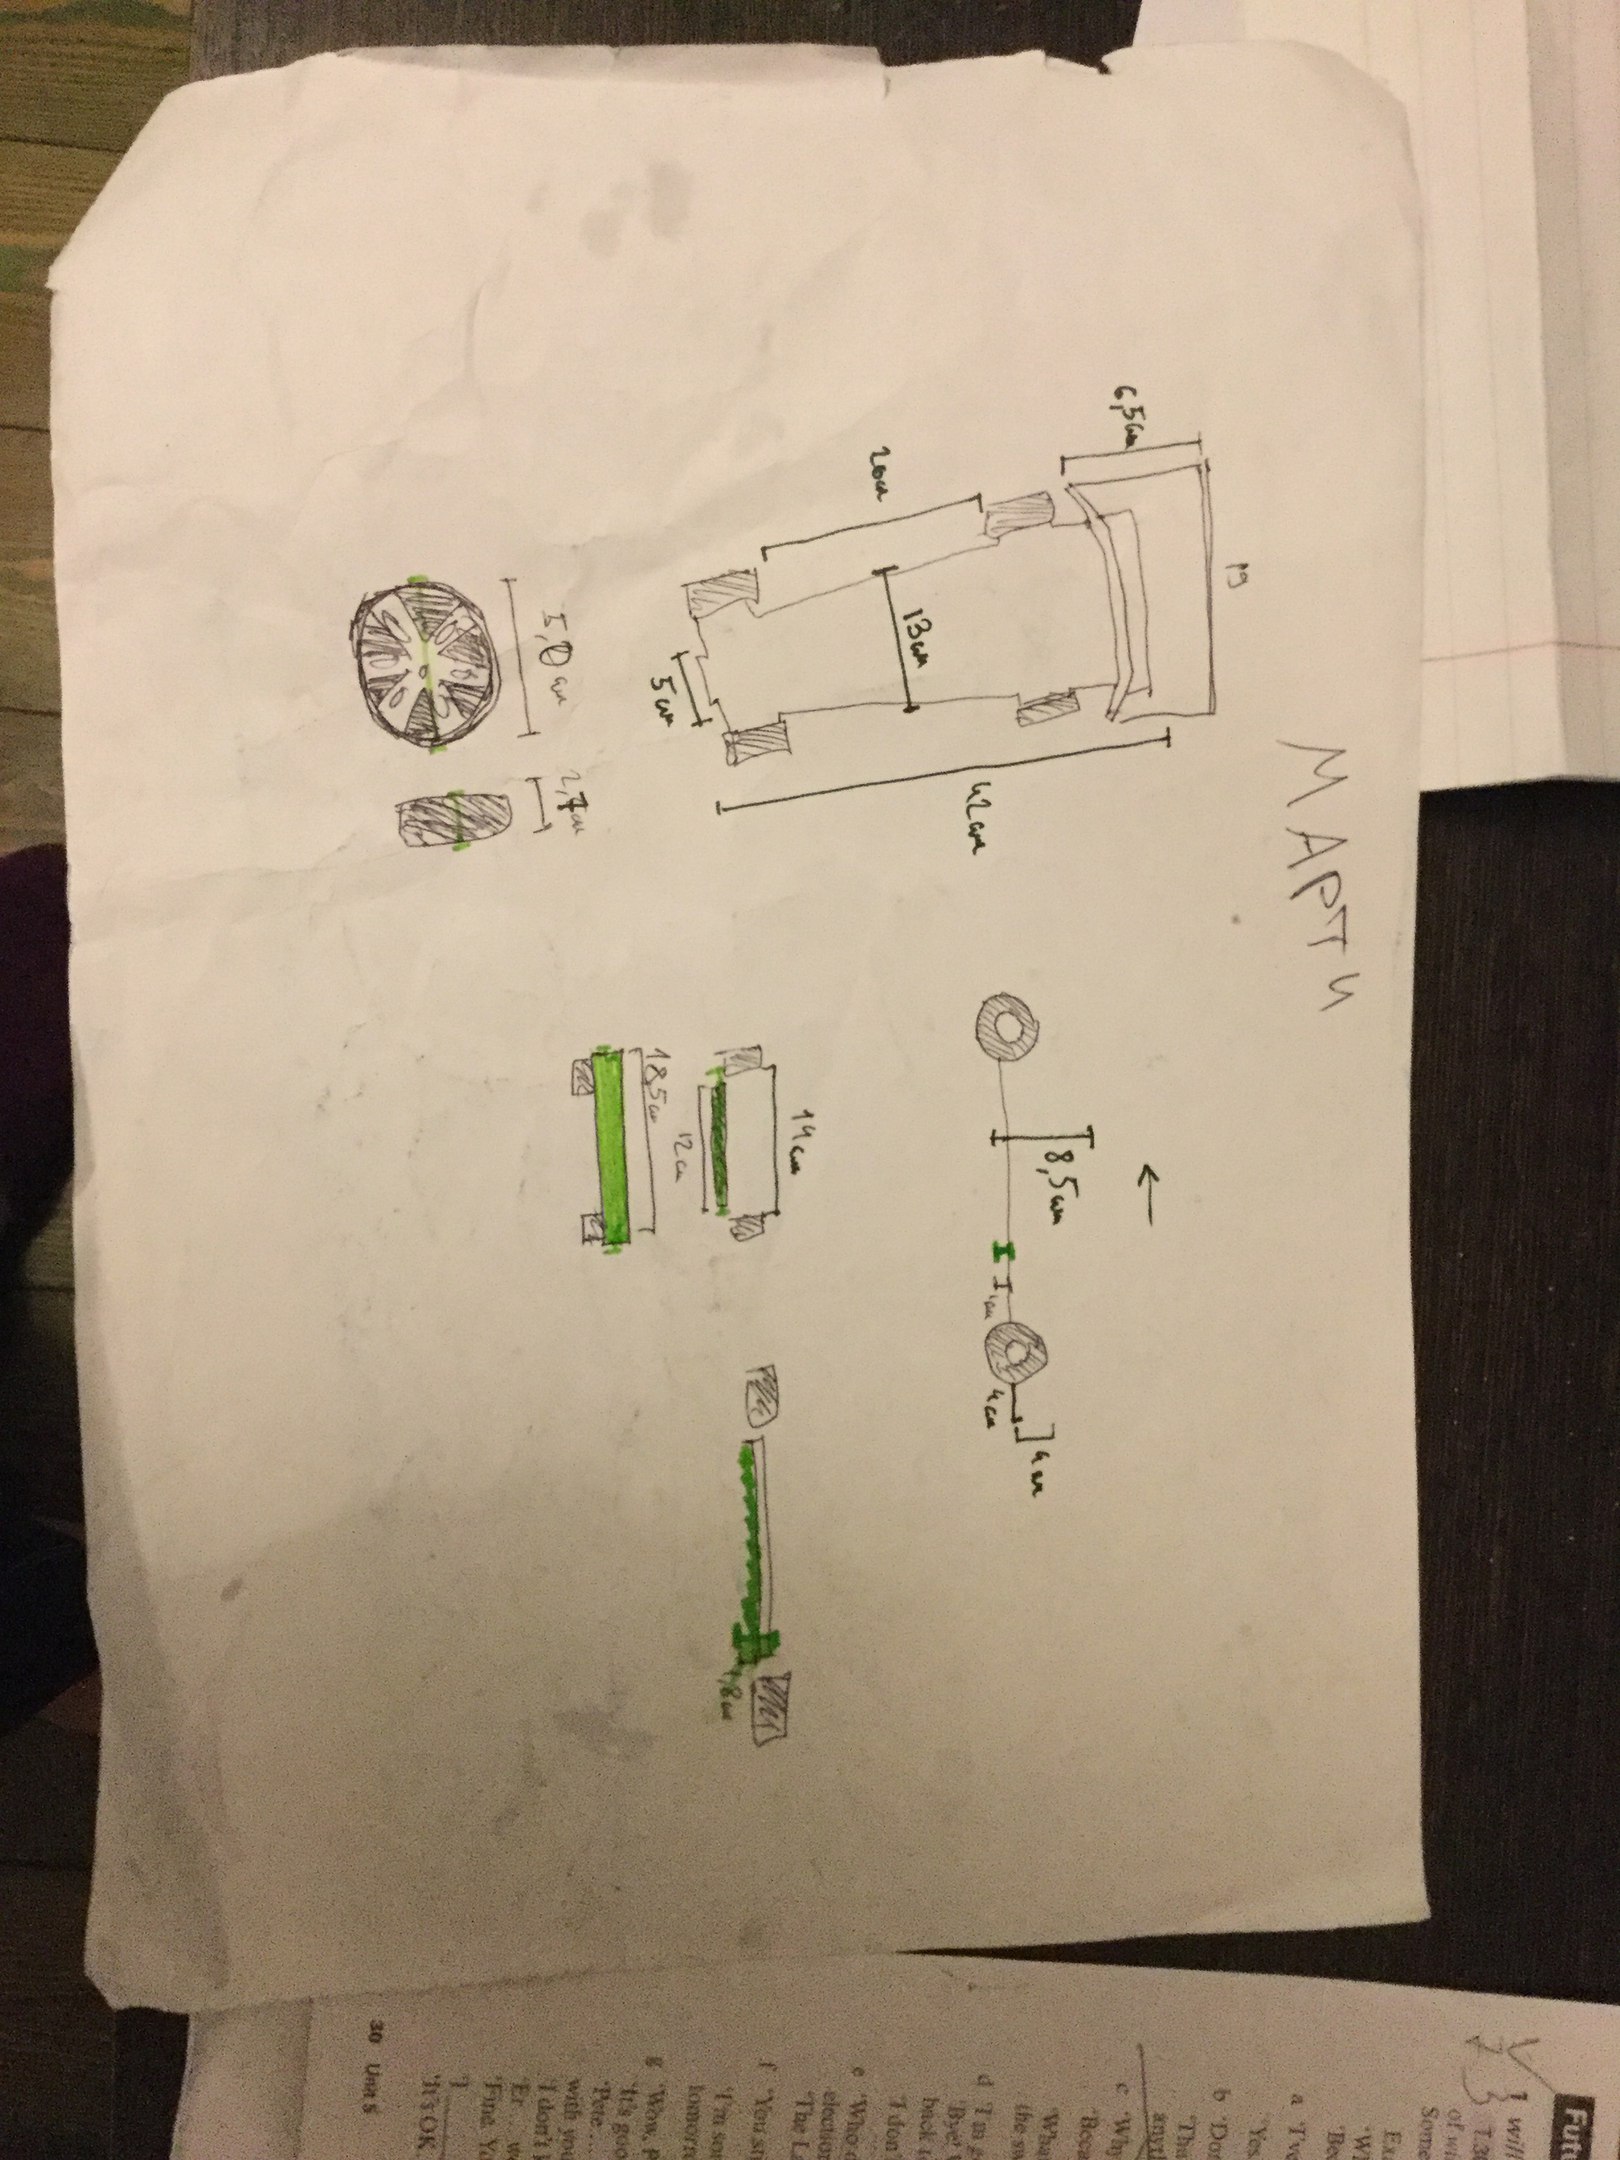 МАРТИ
19
6,5см
42см
13см
20см
5см
8,5см
4см
1см
4см
14см
12см
1,8см
18,5см
5,0см
2,7см
Futu
1 will
T.30
of wi
Some
Exa
'Wh
'Bec
a 'I've
'Yes
b 'Don
'Tha
anyth
c 'Why
'Becau
'What
the sw
d 'I'm g
'Bye!
back t
'I don't
e 'Who d
election
'The La
f 'You sti
'I'm sor
tomorr
g 'Wow, P
'It's goo
'Pete ...
with you
'I don't k
'Er ... we
'Fine. Yo
'I
'It's OK.
30 Unit 5